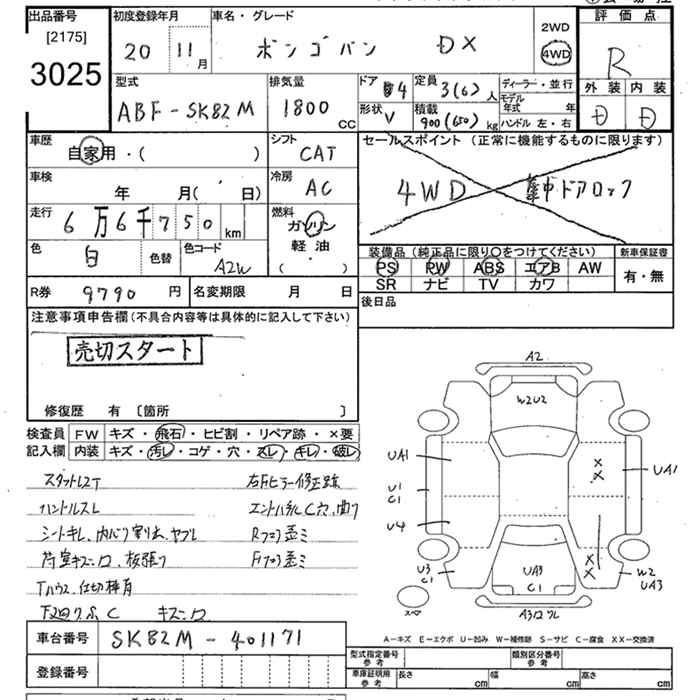 出品番号
[2175]
3025
初度登録年月
20 11月
車名・グレード
ボンゴバン DX
2WD
4WD
評価点
R
外装 内装
D D
型式
ABF-SK82M
排気量
1800 cc
ドア 4
定員 3(6)人
ディーラー・並行
形状 V
積載 900(650)kg
モデル年式 年
ハンドル 左・右
車歴
自家用・( )
シフト
CAT
セールスポイント (正常に機能するものに限ります)
4WD 集中ドアロック
車検
年 月( 日)
冷房
AC
走行
6万6千750 km
燃料
ガソリン
軽油
( )
色
白
色替
色コード
A2W
装備品 (純正品に限り○をつけてください)
PS PW ABS エアB AW
SR ナビ TV カワ
新車保証書
有・無
R券 9790円
名変期限 月 日
後日品
注意事項申告欄(不具合内容等は具体的に記入して下さい)
売切スタート
修復歴 有 〔箇所 〕
検査員
記入欄
FW キズ・飛石・ヒビ割・リペア跡・×要
内装 キズ・汚レ・コゲ・穴・スレ・キレ・破レ
ハンドルスレ
シートキレ、内バリ割れ、ヤブレ
Rフロア歪ミ
Fフロア歪ミ
キズ
A2
W2U2
UA1
U1
C1
U4
U3
C1
UA1
W2
UA3
UA3
C1
スペア
A-キズ E-エクボ U-凹み W-補修跡 S-サビ C-腐食 XX-交換済
車台番号 SK82M-401171
登録番号
型式指定番号
参考
類別区分番号
参考
車庫証明用
参考
長さ cm
幅 cm
高さ cm